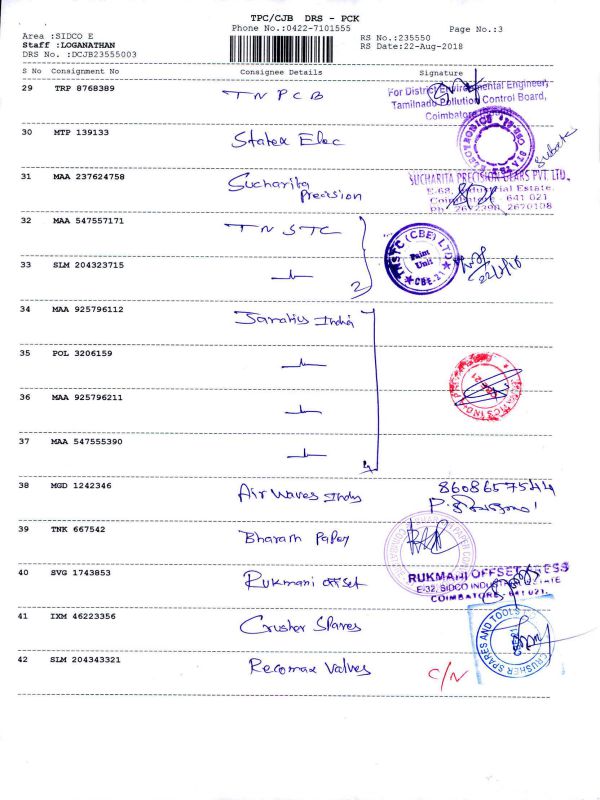 TPC/CJB DRS - PCK
Phone No.:0422-7101555
Page No.:3
Area :SIDCO E
RS No.:235550
Staff :LOGANATHAN
RS Date:22-Aug-2018
DRS No. :DCJB23555003
S No Consignment No Consignee Details Signature
29 TRP 8768389 TNPCB
For District Environmental Engineer,
Tamilnadu Pollution Control Board,
Coimbatore
30 MTP 139133 Statex Elec
31 MAA 237624758 Sucharita Precision
SUCHARITA PRECISION GEARS PVT. LTD.,
E-68, Industrial Estate,
Coimbatore - 641 021
32 MAA 547557171 TNSTC
TNSTC (CBE) LTD
Paint
Unit
★ CBE-21 ★
33 SLM 204323715
2
34 MAA 925796112 India
35 POL 3206159
36 MAA 925796211
37 MAA 547555390
4
38 MGD 1242346 Air Waves India
8608657544
39 TNK 667542 Bharath Paper
40 SVG 1743853 Rukmani offset
RUKMANI OFFSET PRESS
E-32, SIDCO INDUSTRIAL ESTATE
COIMBATORE - 641 021.
41 IXM 46223356 Crusher Spares
CRUSHER SPARES AND TOOLS
42 SLM 204343321 Recomax Valves
C/N